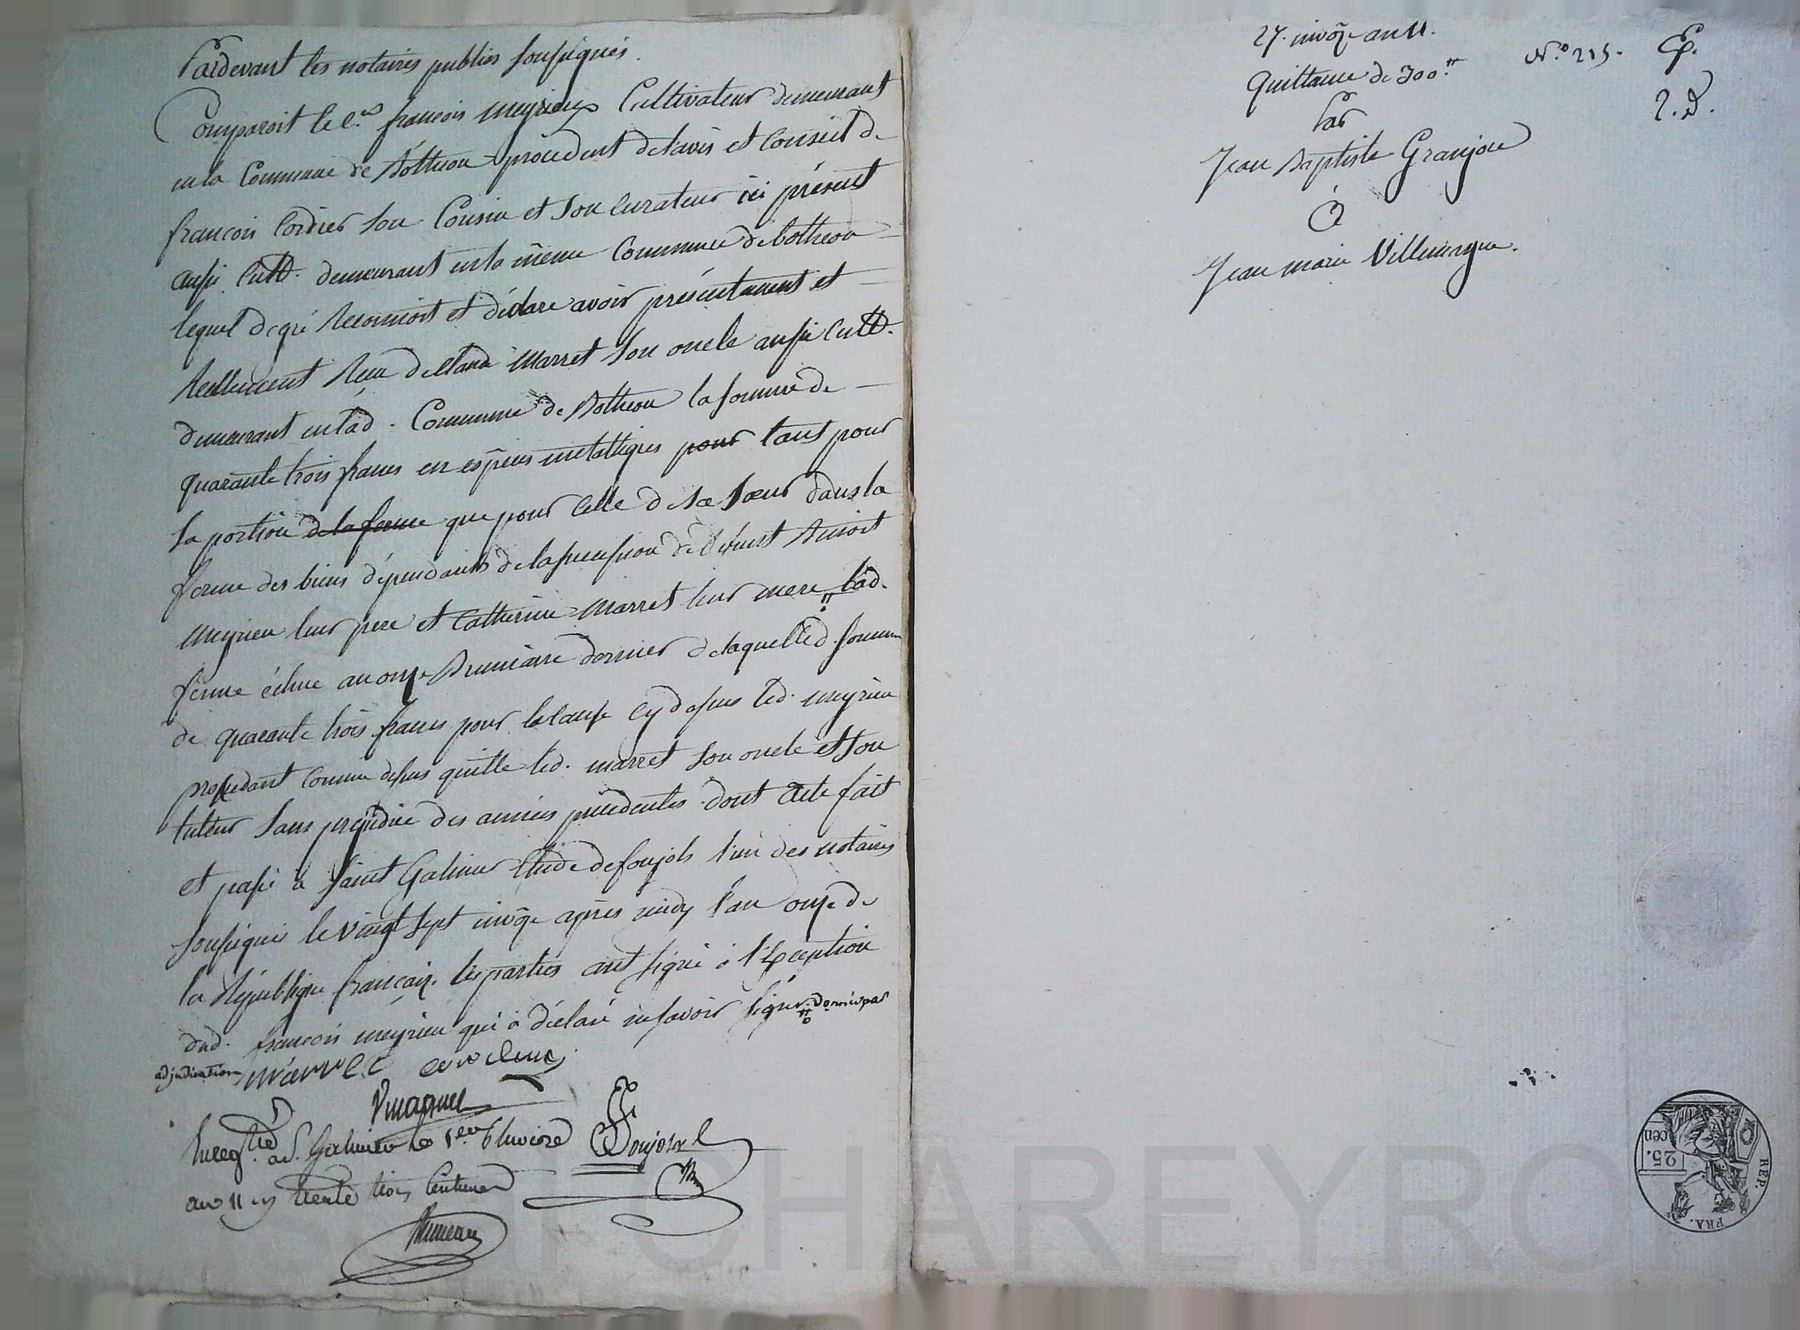 Pardevant les notaires publics soussignés.
Comparoit le C.en françois meyrieux Cultivateur demeurant
en la Commune de Botheon procedent de lavis et Conseil de
francois Cordier son Cousin et son Curateur ici présent
aussi Cultr. demeurant en la même Commune de botheon
lequel de gré Reconnoit et déclare avoir présentement et
Reellement Reçu de marret son oncle aussi Cultr.
demeurant en lad. Commune de Botheon la somme de
quarante trois francs en espèces métalliques pour tant pour
sa portion de la ferme que pour Celle de sa soeur dans la
ferme des biens dépendants de la succession de défunt Benoit
meyrieu leur pere et Catherine marret leur mere lad.
ferme échue au onze Brumaire dernier de laquelled. somme
de quarante trois francs pour la cause cy dessus led. meyrieu
procedant comme dessus quitte led. marret son oncle et son
tuteur sans préjudice des années précedentes dont acte fait
et passé à saint Galmier Etude de foujols l'un des notaires
soussignés le vingt sept nivôse après midy l'an onze de
la République francaise. les parties ont signé à l'Exception
dud. francois meyrieu qui a déclaré ne savoir signer.
adjudication
marret cordier
Enregtré a St. Galmier le 1er Pluviose
an 11 Reçu trente trois Centimes
27. nivôse an 11.
Quittance de 300.tt
Par
Jean Baptiste Granjon
à
Jean marie Villemagne.
N.o 215.
Ep.
2. d.
REP. FRA.
25.
cen
CHAREYRO